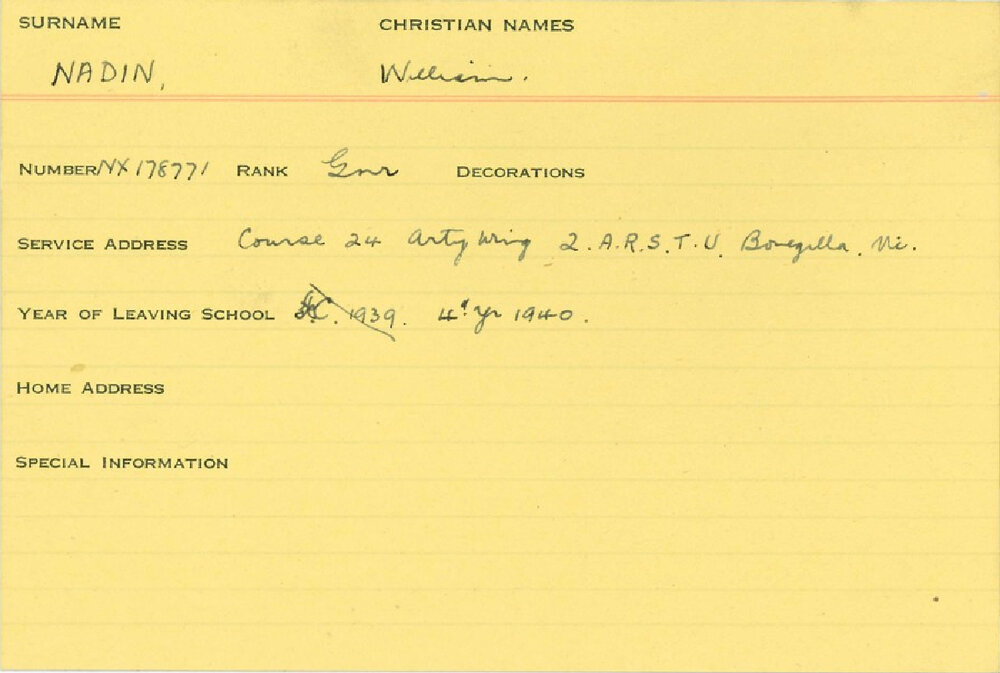 SURNAME CHRISTIAN NAMES
NADIN, William.
NUMBER NX178771 RANK Gnr DECORATIONS
SERVICE ADDRESS Course 24 Arty Wing 2.A.R.S.T.U. Bonegilla. Vic.
YEAR OF LEAVING SCHOOL 1939. 4th Yr 1940.
HOME ADDRESS
SPECIAL INFORMATION